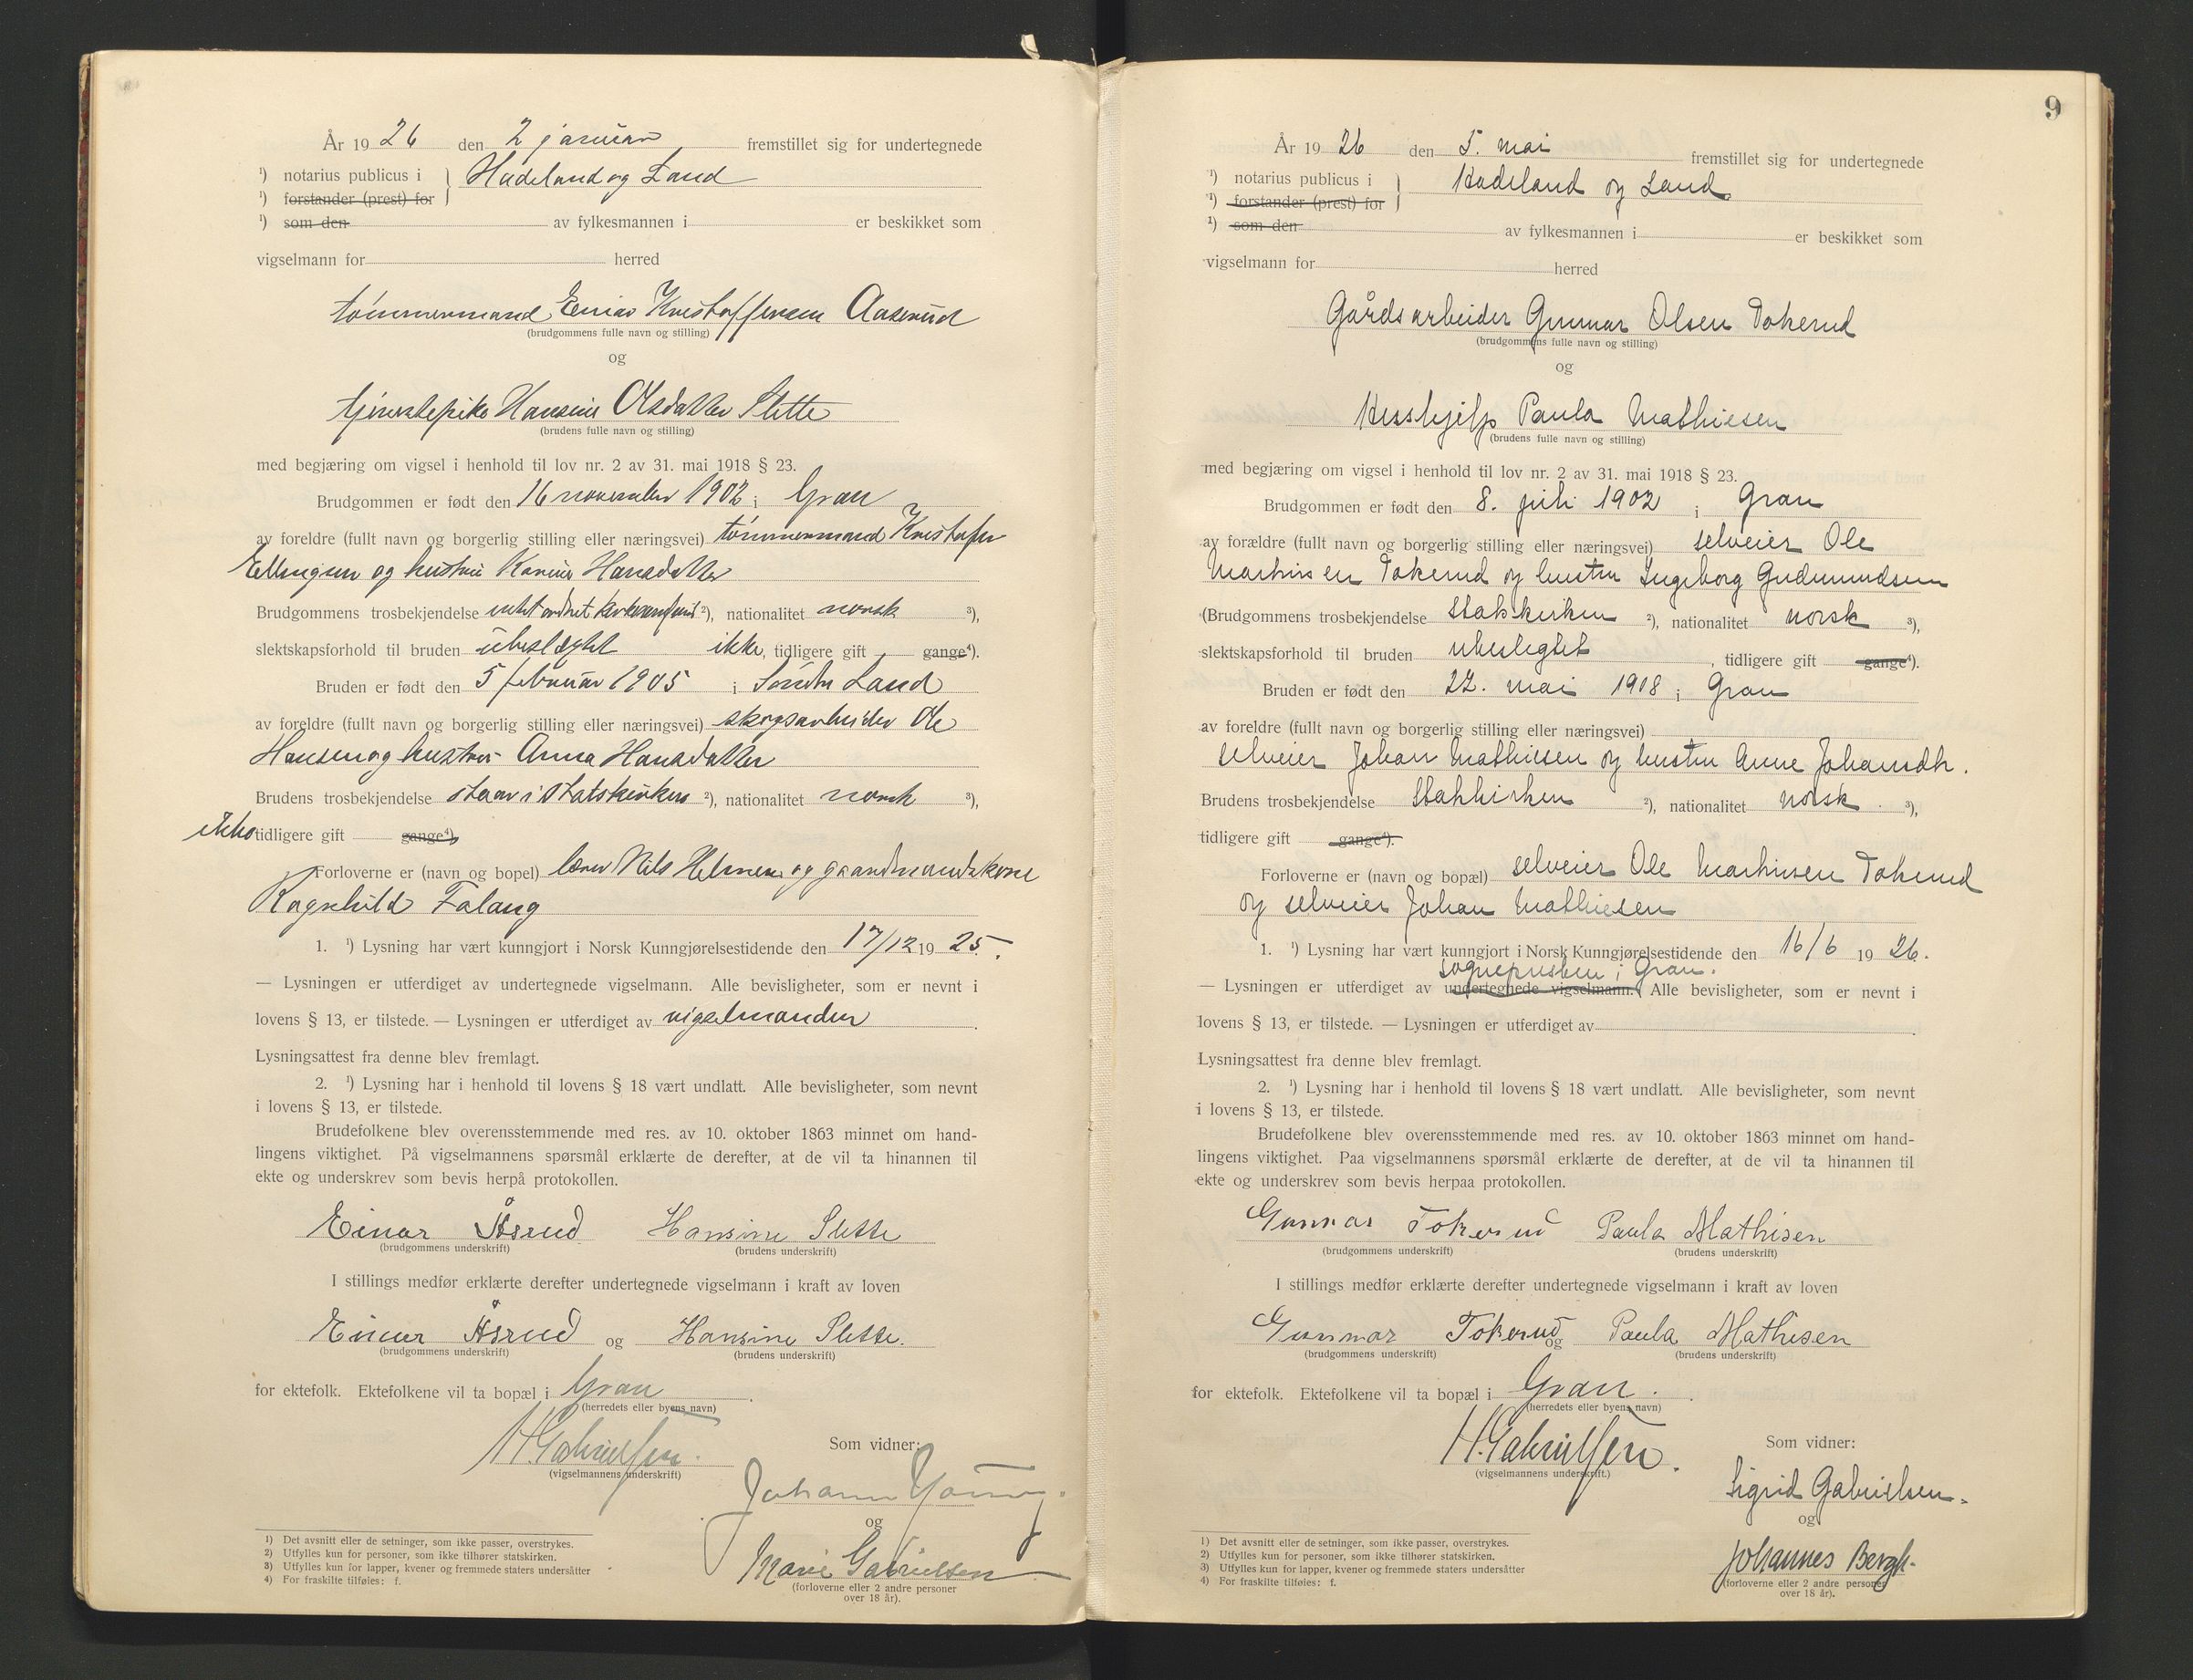 År 19 26 den 2 januar fremstillet sig for undertegnede
¹) notarius publicus i } Hadeland og Land
¹) forstander (prest) for
¹) som den av fylkesmannen i er beskikket som
vigselmann for herred
tømmermand Einar Kristoffersen Aaserud
(brudgommens fulle navn og stilling)
og
tjenestepike Hansine Olsdatter Slette
(brudens fulle navn og stilling)
med begjæring om vigsel i henhold til lov nr. 2 av 31. mai 1918 § 23.
Brudgommen er født den 16 november 1902 i Gran
av foreldre (fullt navn og borgerlig stilling eller næringsvei) tømmermand Kristofer
Ellingsen og hustru Karine Hansdatter
Brudgommens trosbekjendelse ²), nationalitet norsk ³),
slektskapsforhold til bruden ubeslægtet ikke, tidligere gift gange⁴).
Bruden er født den 5 februar 1905 i Søndre Land
av foreldre (fullt navn og borgerlig stilling eller næringsvei) skogsarbeider Ole
Hansen og hustru Anna Hansdatter
Brudens trosbekjendelse staar i statskirken ²), nationalitet norsk ³),
ikke tidligere gift gange⁴)
Forloverne er (navn og bopel) lærer Nils Helmen og gaardmandskone
Ragnhild Falang
1. ¹) Lysning har vært kunngjort i Norsk Kunngjørelsestidende den 17/12 19 25.
— Lysningen er utferdiget av undertegnede vigselmann. Alle bevisligheter, som er nevnt i
lovens § 13, er tilstede. — Lysningen er utferdiget av vigselmanden
Lysningsattest fra denne blev fremlagt.
2. ¹) Lysning har i henhold til lovens § 18 vært undlatt. Alle bevisligheter, som nevnt
i lovens § 13, er tilstede.
Brudefolkene blev overensstemmende med res. av 10. oktober 1863 minnet om hand-
lingens viktighet. På vigselmannens spørsmål erklærte de derefter, at de vil ta hinannen til
ekte og underskrev som bevis herpå protokollen.
Einar Åsrud Hansine Slette
(brudgommens underskrift) (brudens underskrift)
I stillings medfør erklærte derefter undertegnede vigselmann i kraft av loven
Einar Åsrud og Hansine Slette.
(brudgommens underskrift) (brudens underskrift)
for ektefolk. Ektefolkene vil ta bopæl i Gran.
(herredets eller byens navn)
H. Gabrielsen.
(vigselmannens underskrift)
Som vidner:
Johann
og
Marie Gabrielsen
(forloverne eller 2 andre personer
over 18 år).
1) Det avsnitt eller de setninger, som ikke passer, overstrykes.
2) Utfylles kun for personer, som ikke tilhører statskirken.
3) Utfylles kun for lapper, kvener og fremmede staters undersåtter
4) For fraskilte tilføies: f.
9
År 19 26 den 5. mai fremstillet sig for undertegnede
¹) notarius publicus i } Hadeland og Land
¹) forstander (prest) for
¹) som den av fylkesmannen i er beskikket som
vigselmann for herred
Gårdsarbeider Gunnar Olsen Tokerud
(brudgommens fulle navn og stilling)
og
Hushjelp Paula Mathiesen
(brudens fulle navn og stilling)
med begjæring om vigsel i henhold til lov nr. 2 av 31. mai 1918 § 23.
Brudgommen er født den 8. juli 1902 i Gran
av forældre (fullt navn og borgerlig stilling eller næringsvei) selveier Ole
Mathisen Tokerud og hustru Ingeborg Gudmundsen
(Brudgommens trosbekjendelse Statskirken ²), nationalitet norsk ³),
slektskapsforhold til bruden ubeslegtet, tidligere gift gange⁴).
Bruden er født den 22. mai 1908 i Gran
av foreldre (fullt navn og borgerlig stilling eller næringsvei)
selveier Johan Mathiesen og hustru Anne Johansdtr.
Brudens trosbekjendelse Statskirken ²), nationalitet norsk. ³),
tidligere gift gange⁴).
Forloverne er (navn og bopæl) selveier Ole Mathisen Tokerud
og selveier Johan Mathiesen
1. ¹) Lysning har vært kunngjort i Norsk Kunngjørelsestidende den 16/6 19 26.
sognepresten i Gran.
— Lysningen er utferdiget av undertegnede vigselmann. Alle bevisligheter, som er nevnt i
lovens § 13, er tilstede. — Lysningen er utferdiget av .
Lysningsattest fra denne blev fremlagt.
2. ¹) Lysning har i henhold til lovens § 18 vært undlatt. Alle bevisligheter, som nevnt
i lovens § 13, er tilstede.
Brudefolkene blev overensstemmende med res. av 10. oktober 1863 minnet om hand-
lingens viktighet. Paa vigselmannens spørsmål erklærte de derefter, at de vil ta hinannen til
ekte og underskrev som bevis herpaa protokollen.
Gunnar Tokerud Paula Mathisen
(brudgommens underskrift) (brudens underskrift)
I stillings medfør erklærte derefter undertegnede vigselmann i kraft av loven
Gunnar Tokerud og Paula Mathisen
(brudgommens underskrift) (brudens underskrift)
for ektefolk. Ektefolkene vil ta bopæl i Gran.
(herredets eller byens navn)
H. Gabrielsen.
(vigselmannens underskrift.)
Som vidner:
Sigrid Gabrielsen.
og
Johannes Bergh.
(forloverne eller 2 andre personer
over 18 år).
1) Det avsnitt eller de setninger, som ikke passer, overstrykes.
2) Utfylles kun for personer, som ikke tilhører statskirken.
3) Utfylles kun for lapper, kvener og fremmede staters undersåtter
4) For fraskilte tilføies: f.